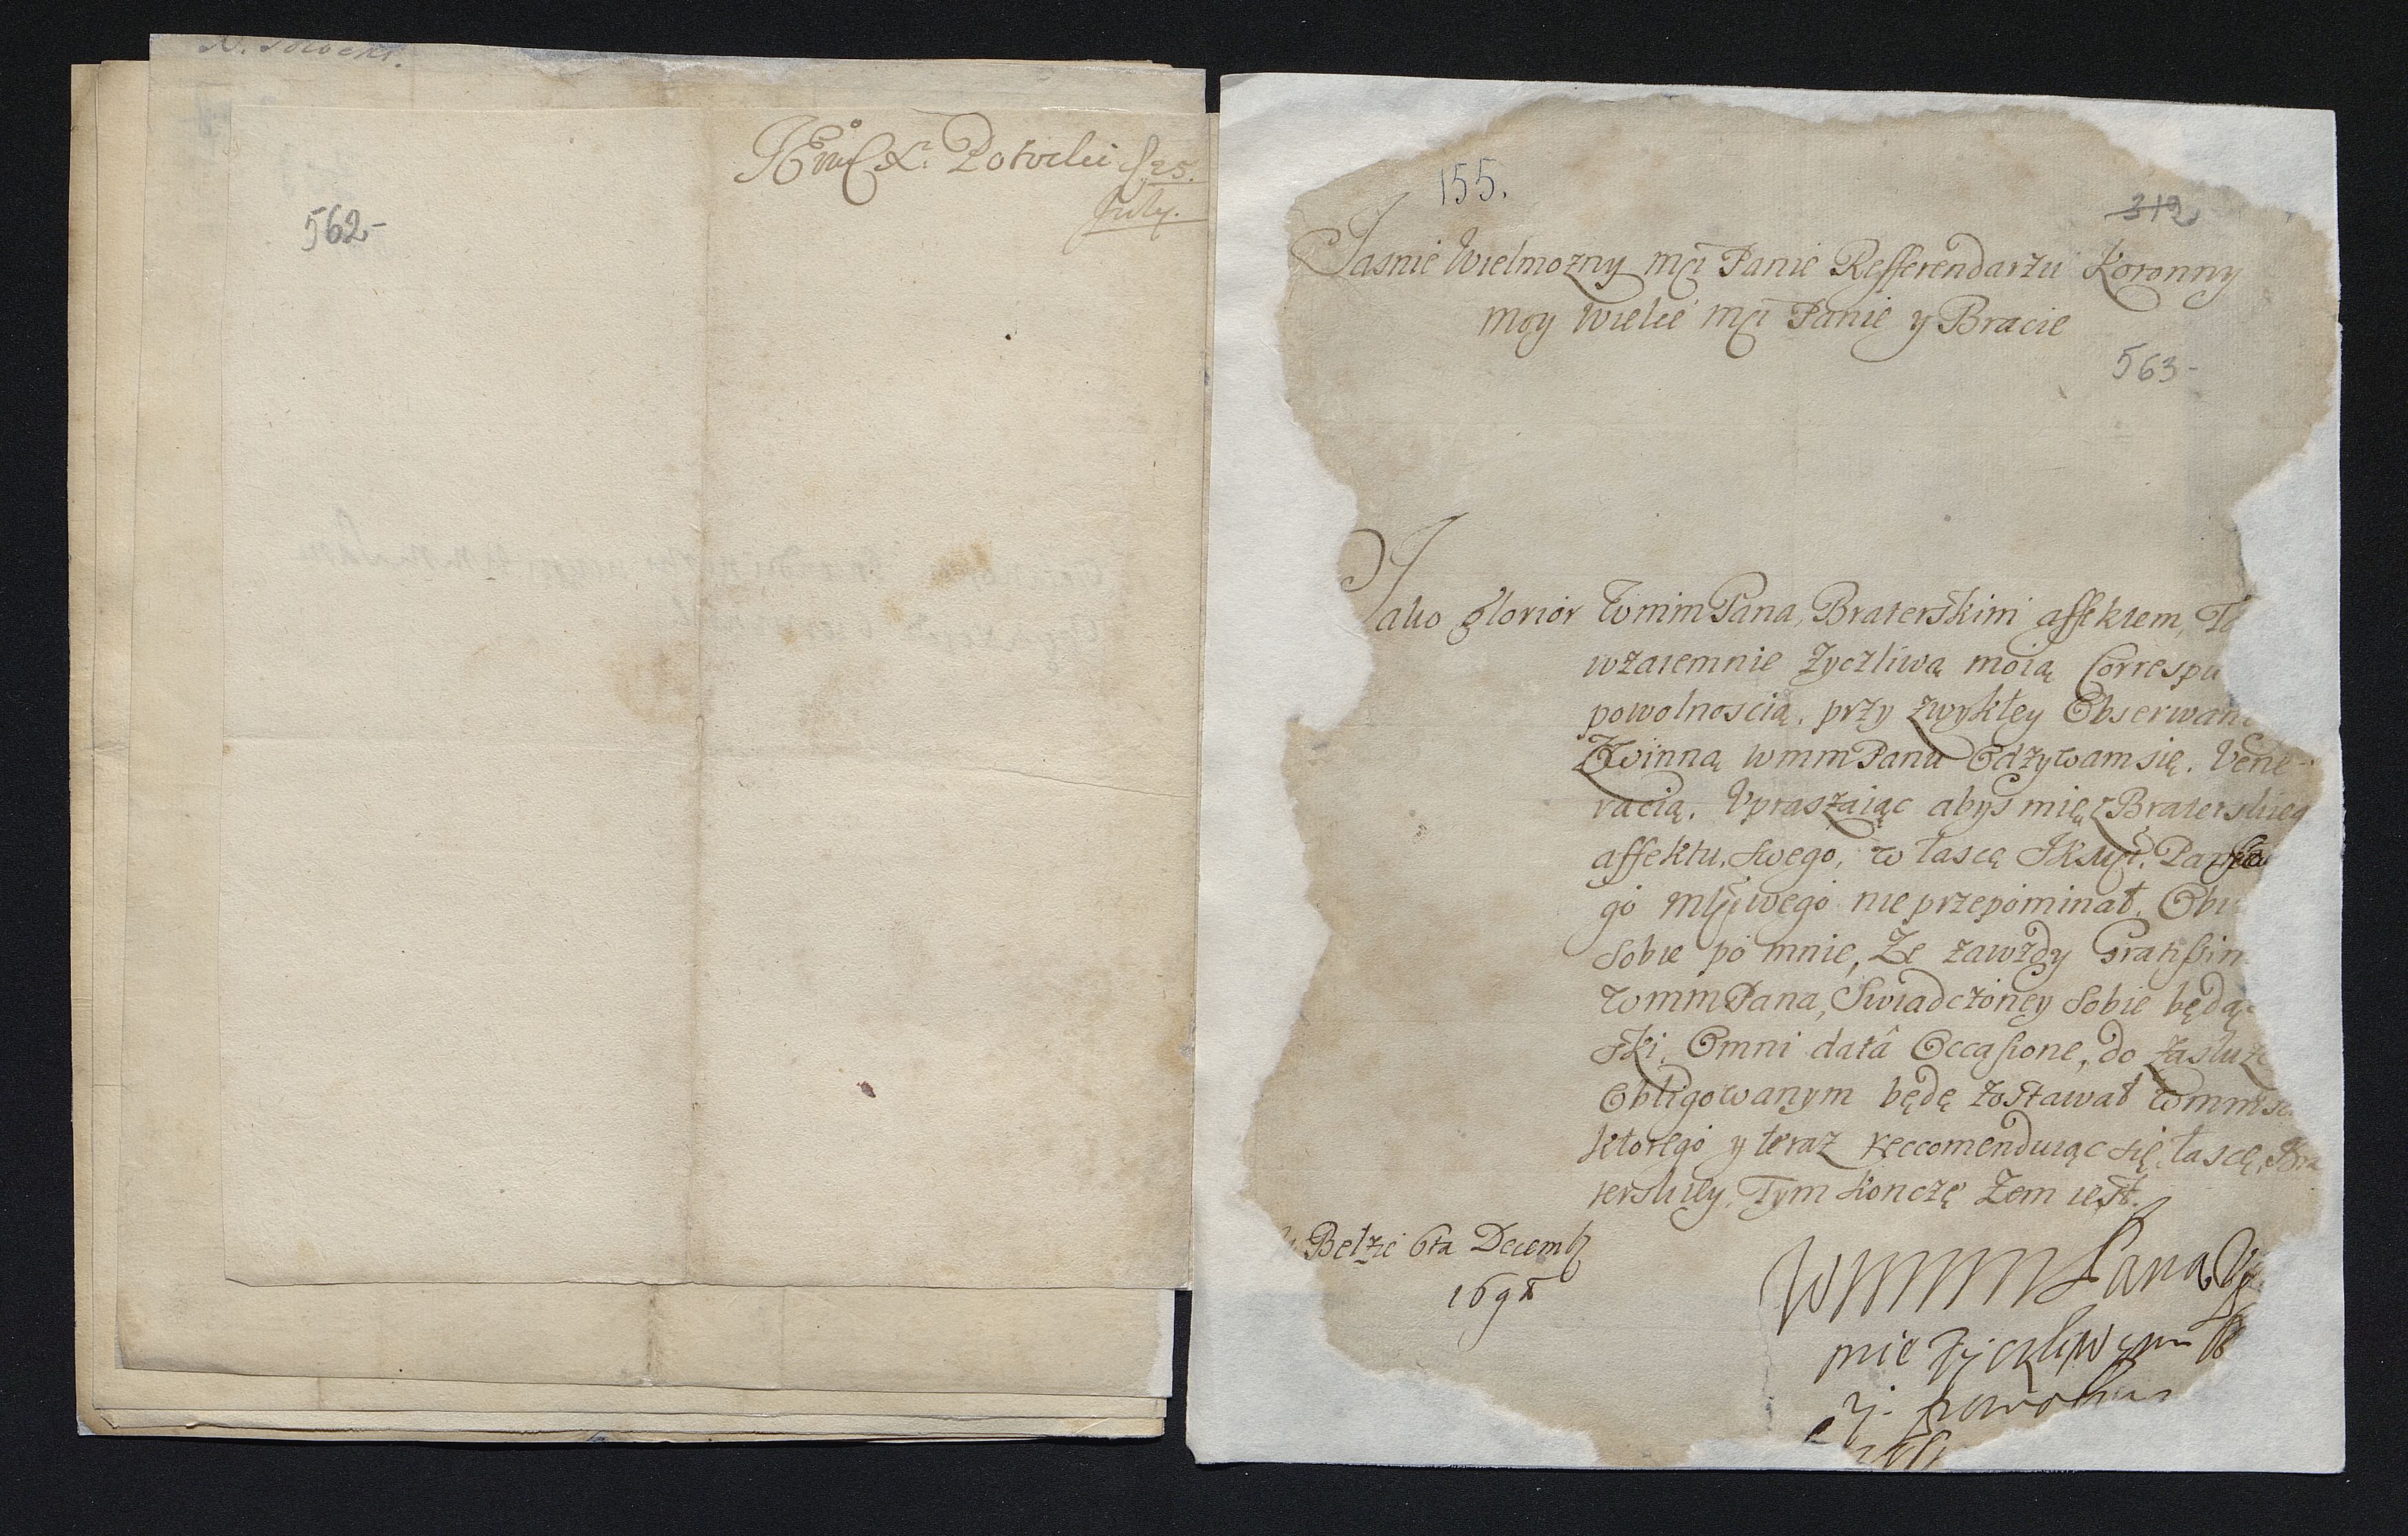 N. Potocki.
562-
JEmć X. Potocki d. 25.
July.
155.
312
Jasnie Wielmozny Mći Panie Refferendarzu Koronny
moy Wielce Mći Panie y Bracie
563-
Jako glorior WmmPana, Braterskim affektem, Ta
wzaiemnie zyczliwą moią Correspu
powolnoscią, przy zwykłey Obserwan
Zwinną WmmPanu Odzywam się. Vene-
racią. Vpraszaiąc abys mię z Braterskieg
affektu, swego, w łascą JKMći, Pań
go Młćiwego nie przepominał. Obi
sobie po mnie, Ze zawzdy Gratissim
WmmPana, Swiadczoney sobie będąc
ski, Omni datâ Occasione, do zasłuze
Obligowanym będę zostawał Wmm
ktorego y teraz reccomenduiąc się łascę, Bra
terskiey, Tym konczę Zem iest.
Bełzie 6ta Decemb
169
WmmPana
mie zyczliwym
y powolny